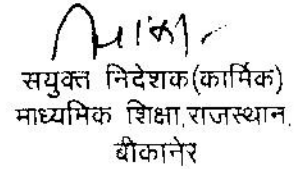 सयुक्त निदेशक(कार्मिक)
माध्यमिक शिक्षा,राजस्थान,
बीकानेर